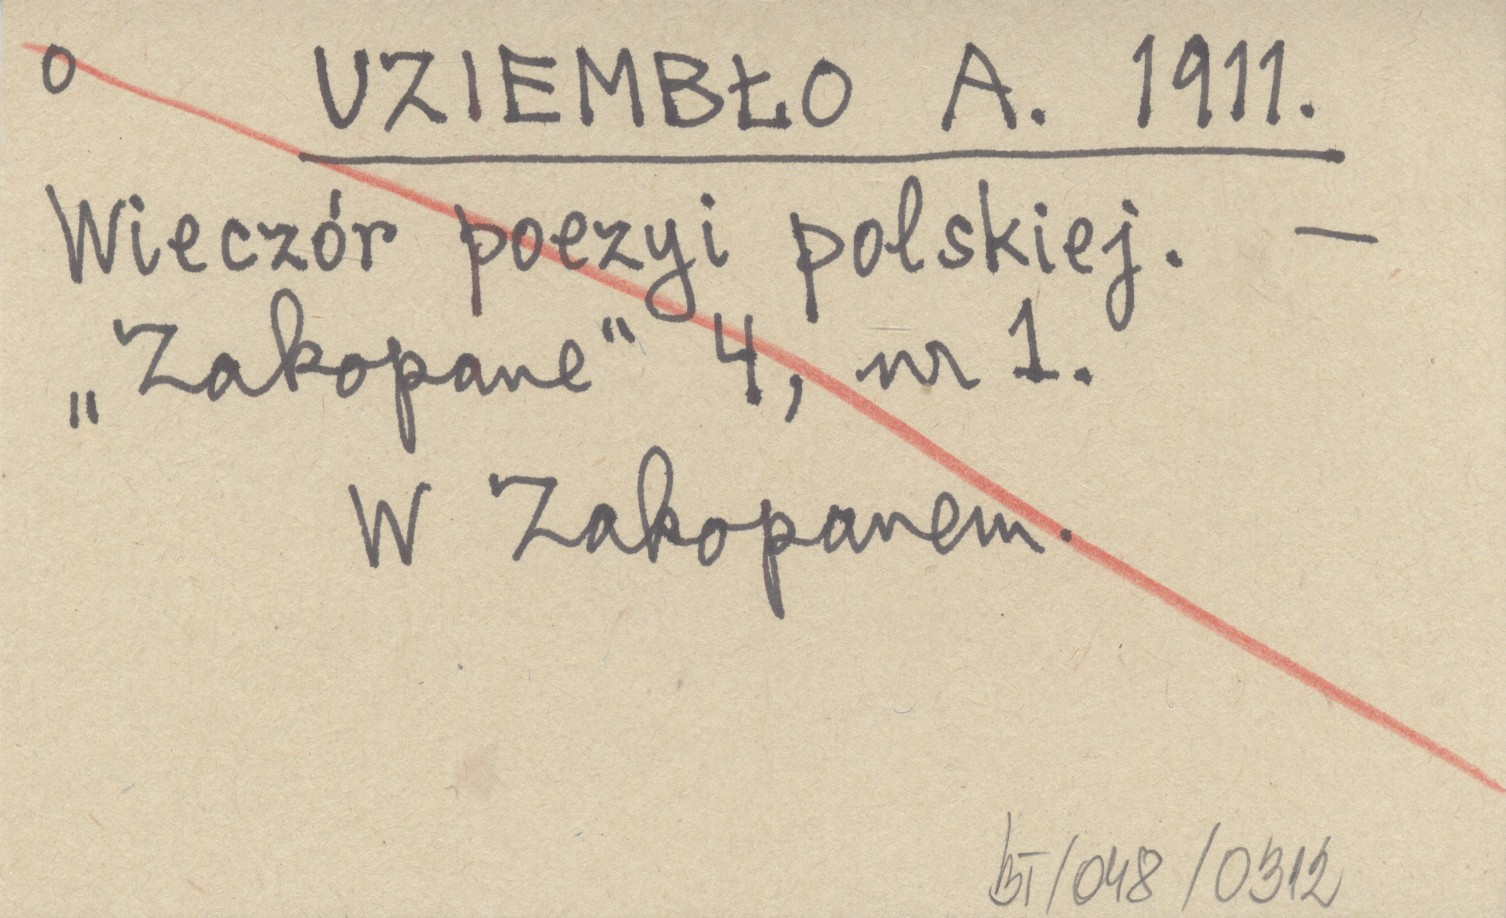 o UZIEMBŁO A. 1911.
Wieczór poezyi polskiej. —
„Zakopane" 4, nr 1.
W Zakopanem.
BT/048/0312